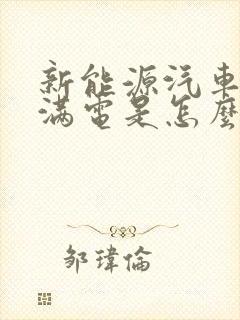 新能源汽車
滿電是怎麼
鄒瑋倫